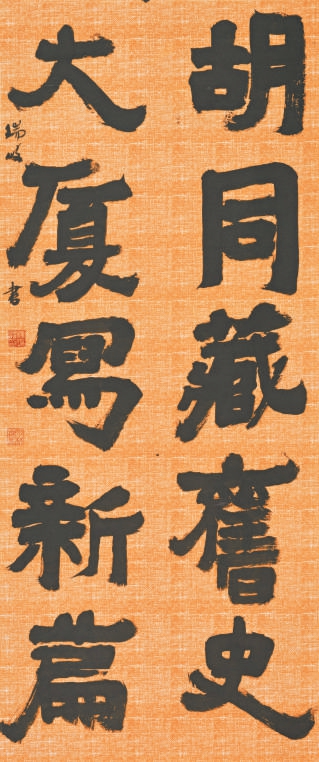 胡同藏舊史
大厦寫新篇
瑞峰 書